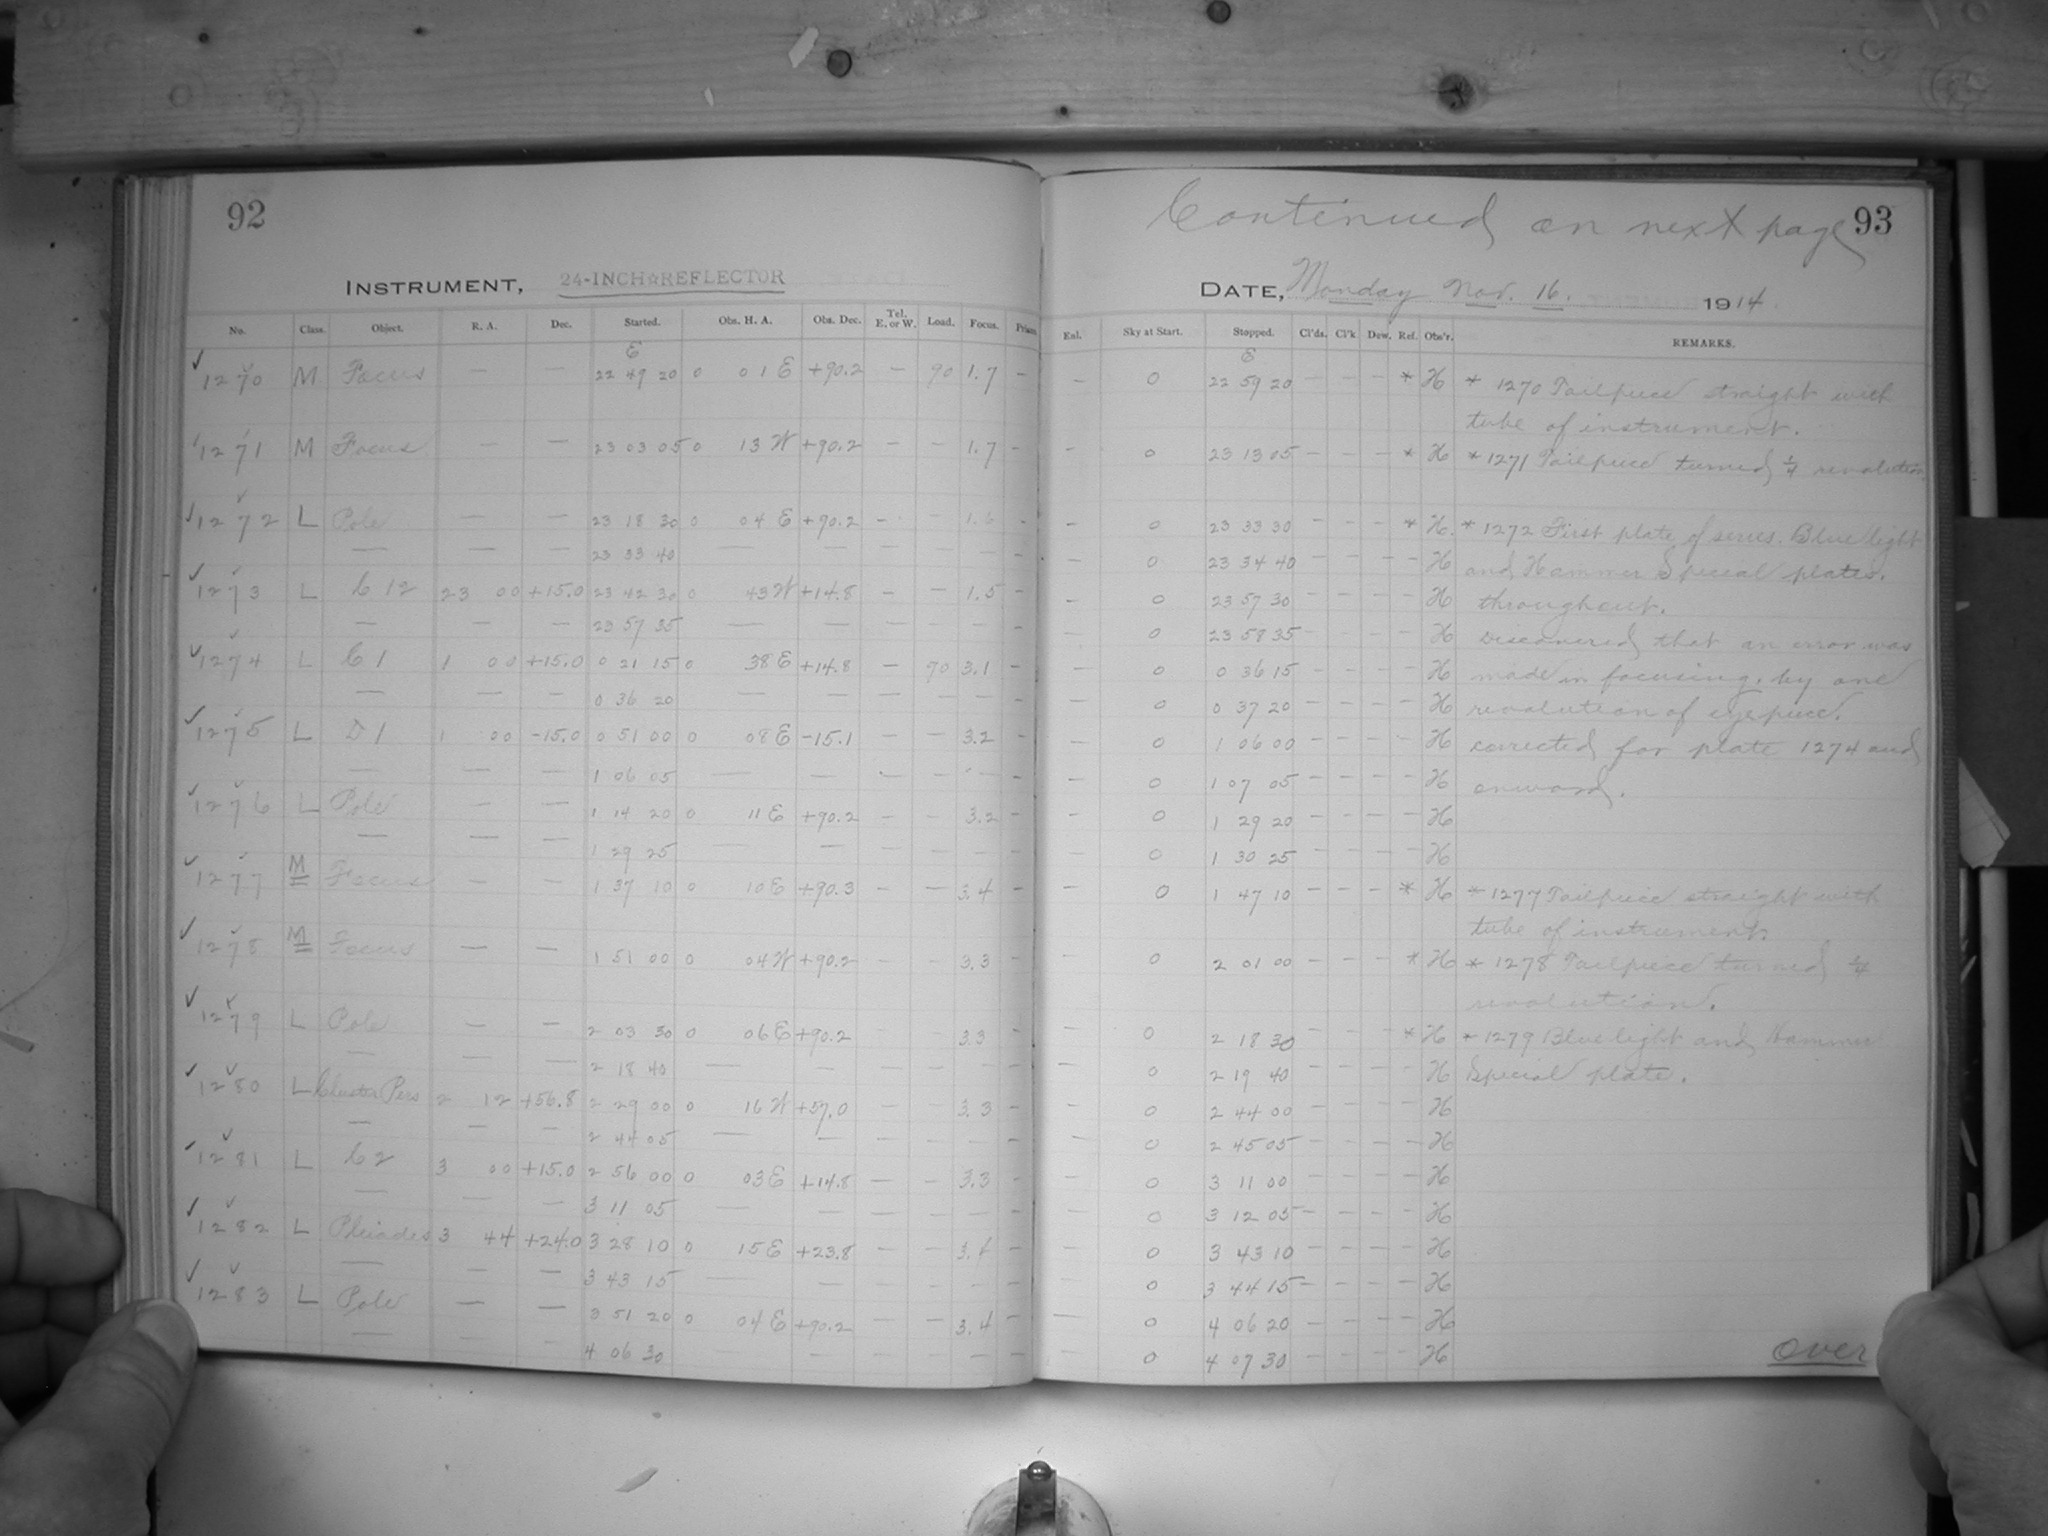 92
INSTRUMENT, 24-INCH☆REFLECTOR
No. Class. Object. R. A. Dec. Started. Obs. H. A. Obs. Dec. Tel. E. or W. Load. Focus. Prism
E
1270 M Focus — — 22 49 20 0 01 E +90.2 — 90 1.7 —
1271 M Focus — — 23 03 05 0 13 W +90.2 — — 1.7 —
1272 L Pole — — 23 18 30 0 04 E +90.2 — — 1.6 —
— — — 23 33 40 — — — — — —
1273 L C 12 23 00 +15.0 23 42 30 0 43 W +14.8 — — 1.5 —
— — — 23 57 35 — — — — — —
1274 L C 1 1 00 +15.0 0 21 15 0 38 E +14.8 — 90 3.1 —
— — — 0 36 20 — — — — — —
1275 L D 1 1 00 -15.0 0 51 00 0 08 E -15.1 — — 3.2 —
— — — 1 06 05 — — — — — —
1276 L Pole — — 1 14 20 0 11 E +90.2 — — 3.2 —
— — — 1 29 25 — — — — — —
1277 M Focus — — 1 37 10 0 10 E +90.3 — — 3.4 —
1278 M Focus — — 1 51 00 0 04 W +90.2 — — 3.3 —
1279 L Pole — — 2 03 30 0 06 E +90.2 — — 3.3 —
— — — 2 18 40 — — — — — —
1280 L Cluster Pers 2 12 +56.8 2 29 00 0 16 W +57.0 — — 3.3 —
— — — 2 44 05 — — — — — —
1281 L C 2 3 00 +15.0 2 56 00 0 03 E +14.8 — — 3.3 —
— — — 3 11 05 — — — — — —
1282 L Pleiades 3 44 +24.0 3 28 10 0 15 E +23.8 — — 3.4 —
— — — 3 43 15 — — — — — —
1283 L Pole — — 3 51 20 0 04 E +90.2 — — 3.4 —
— — 4 06 30 — — — — — —
Continued on next page 93
DATE, Monday Nov. 16. 1914.
Enl. Sky at Start. Stopped. Cl'ds. Cl'k Dew. Ref. Obs'r. REMARKS.
E
— 0 22 59 20 — — — * H * 1270 Tailpiece straight with
tube of instrument.
— 0 23 13 05 — — — * H * 1271 Tailpiece turned ¼ revolution
— 0 23 33 30 — — — * H. * 1272 First plate of series. Blue light
— 0 23 34 40 — — — — H and Hammer Special plates.
— 0 23 57 30 — — — — H throughout.
— 0 23 58 35 — — — — H Discovered that an error was
— 0 0 36 15 — — — — H made in focusing, by one
— 0 0 37 20 — — — — H revolution of eyepiece.
— 0 1 06 00 — — — — H corrected for plate 1274 and
— 0 1 07 05 — — — — H onward.
— 0 1 29 20 — — — — H
— 0 1 30 25 — — — — H
— 0 1 47 10 — — — * H * 1277 Tailpiece straight with
tube of instrument.
— 0 2 01 00 — — — * H * 1278 Tailpiece turned ¼
revolution.
— 0 2 18 30 — — — * H * 1279 Blue light and Hammer
— 0 2 19 40 — — — — H Special plate.
— 0 2 44 00 — — — — H
— 0 2 45 05 — — — — H
— 0 3 11 00 — — — — H
— 0 3 12 05 — — — — H
— 0 3 43 10 — — — — H
— 0 3 44 15 — — — — H
— 0 4 06 20 — — — — H
— 0 4 07 30 — — — — H
Over